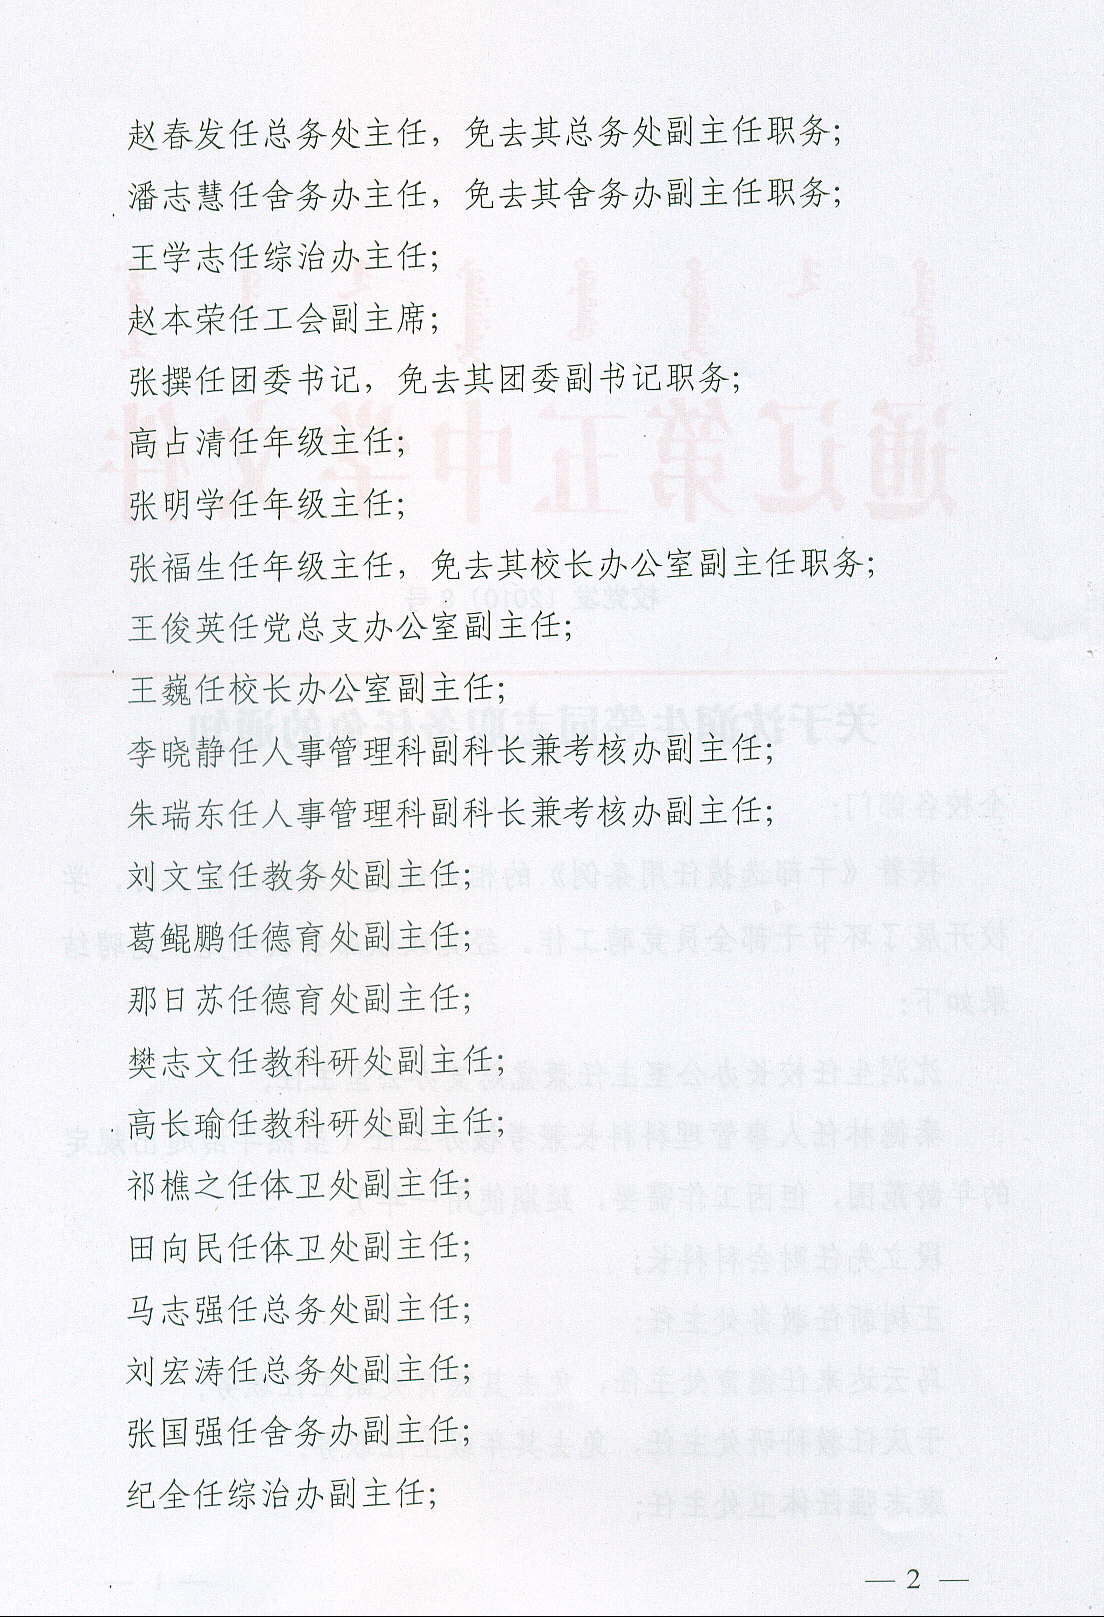 赵春发任总务处主任，免去其总务处副主任职务；
潘志慧任舍务办主任，免去其舍务办副主任职务；
王学志任综治办主任；
赵本荣任工会副主席；
张撰任团委书记，免去其团委副书记职务；
高占清任年级主任；
张明学任年级主任；
张福生任年级主任，免去其校长办公室副主任职务；
王俊英任党总支办公室副主任；
王巍任校长办公室副主任；
李晓静任人事管理科副科长兼考核办副主任；
朱瑞东任人事管理科副科长兼考核办副主任；
刘文宝任教务处副主任；
葛鲲鹏任德育处副主任；
那日苏任德育处副主任；
樊志文任教科研处副主任；
高长瑜任教科研处副主任；
祁樵之任体卫处副主任；
田向民任体卫处副主任；
马志强任总务处副主任；
刘宏涛任总务处副主任；
张国强任舍务办副主任；
纪全任综治办副主任；
— 2 —